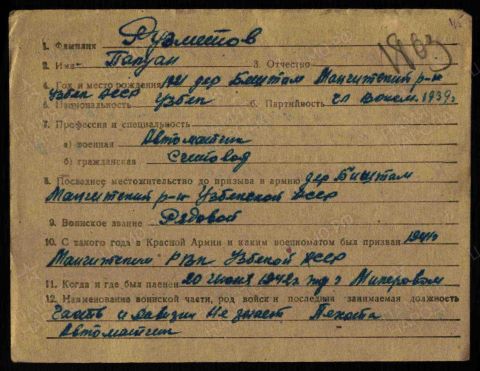 1803
1. Фамилия Рузметов
2. Имя Паруам 3. Отчество
4. Год и место рождения 1921 дер Биштам Мангитский р-н
Узбек ССР
5. Национальность Узбек 6. Партийность чл вокем. 1939г
7. Профессия и специальность
а) военная Автоматчик
б) гражданская Счетовод
8. Последнее местожительство до призыва в армию дер Биштам
Мангитский р-н Узбекской ССР
9. Воинское звание Рядовой
10. С такого года в Красной Армии и каким военкоматом был призван
Мангитский РВК Узбекой ССР
11. Когда и где был пленен 20 июня 1942г под г
12. Наименование воинской части, род войск и последняя занимаемая должность
Часть и дивизии не знает Пехота
Автоматчик